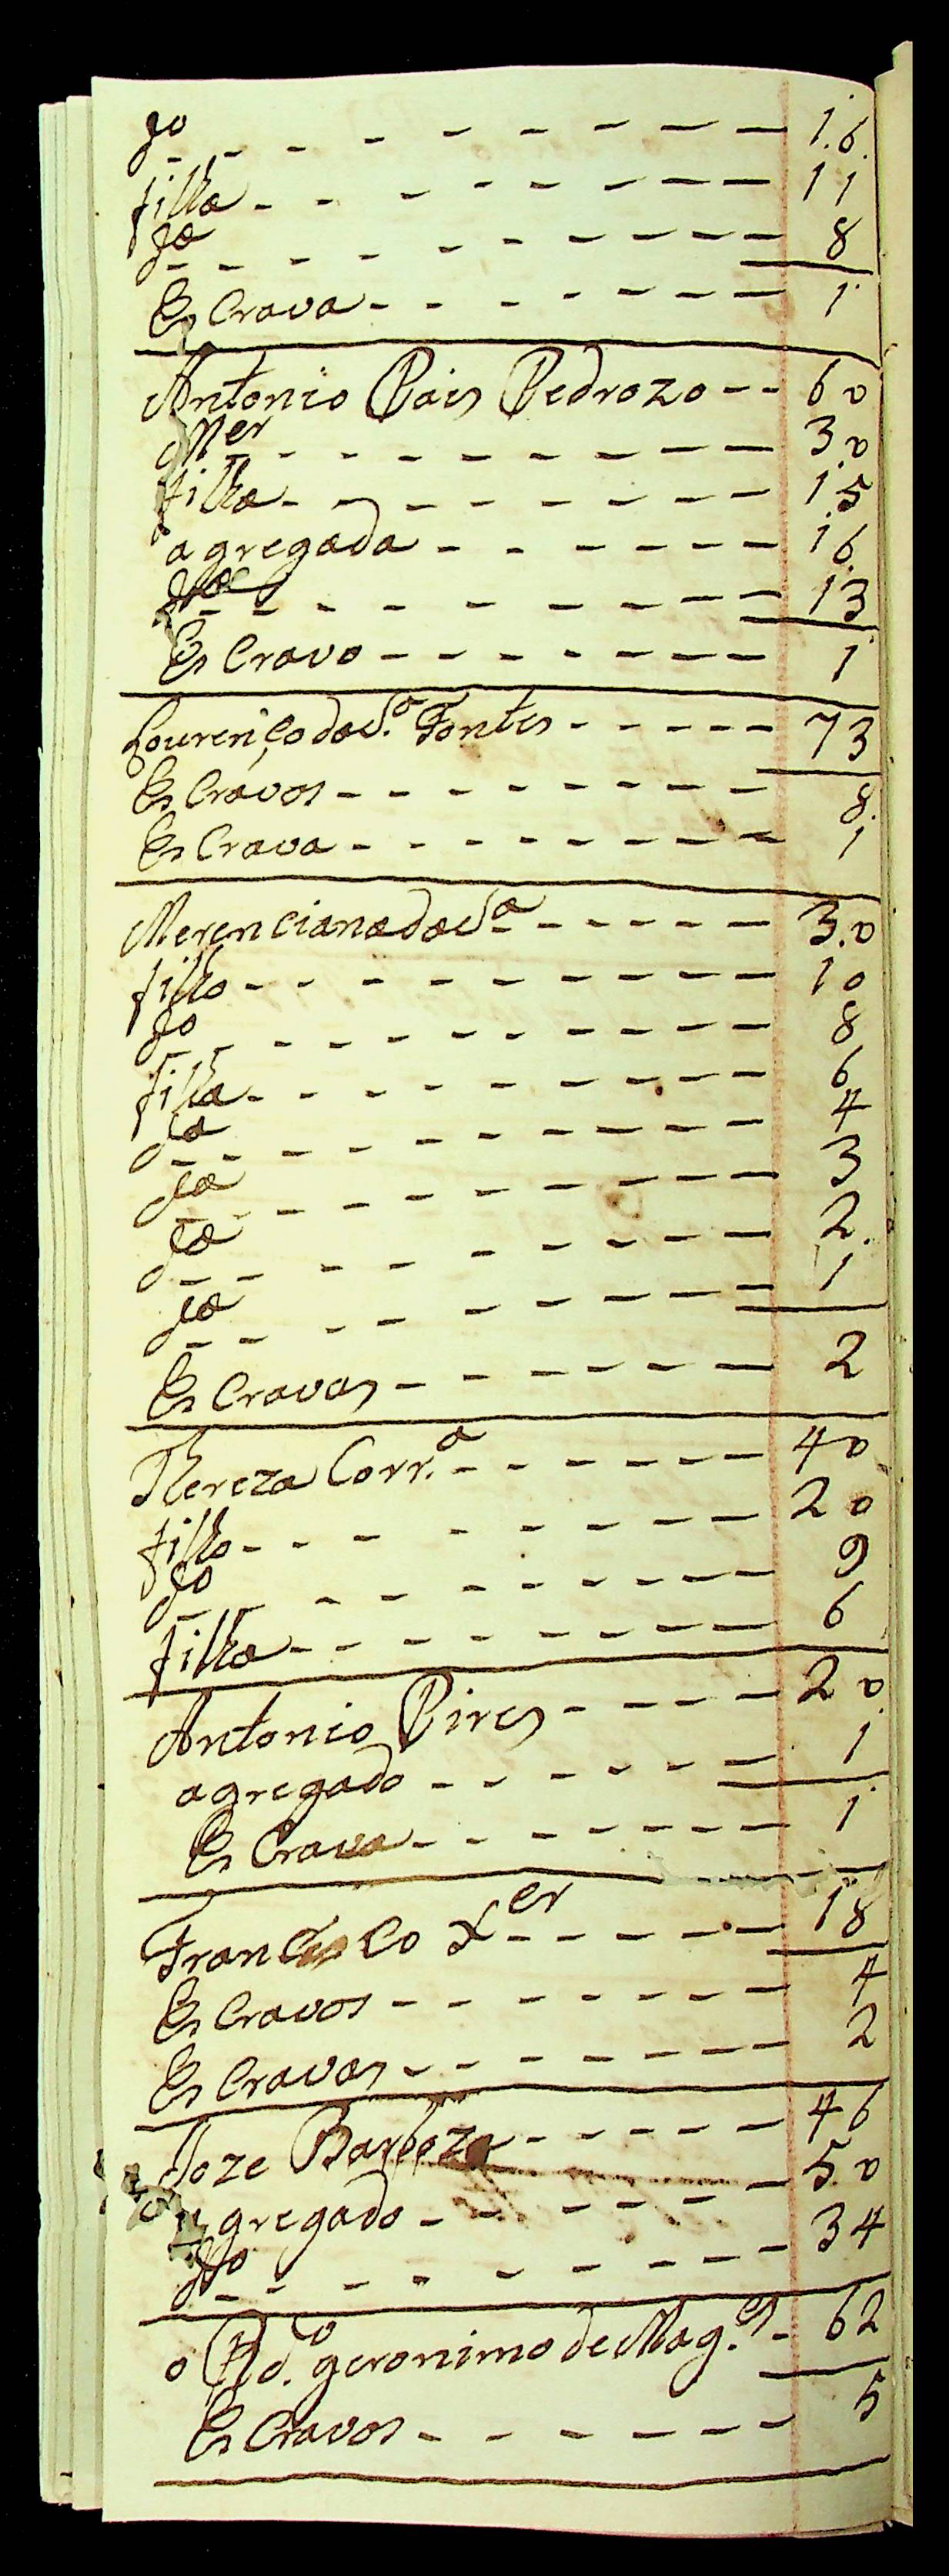 fo - - - - - - - - - 16
filha - - - - - - - - 11
fa - - - - - - - - - 8
EsCrava - - - - - - - 1
Antonio Pais Pedrozo - - 60
Mer - - - - - - - - - 30
filha - - - - - - - - 15
agregada - - - - - - 16
fa - - - - - - - - - 13
EsCravo - - - - - - - 1
Lourenço da S.a Fontes - - - - - 73
EsCravos - - - - - - - - 8
EsCrava - - - - - - - - 1
Merenciana da Sa - - - - - - 30
filho - - - - - - - - - 10
fo - - - - - - - - - 8
filha - - - - - - - - - 6
fa - - - - - - - - - 4
fa - - - - - - - - - 3
fa - - - - - - - - - 2
fa - - - - - - - - - 1
EsCravas - - - - - - - 2
Thereza Corr.a - - - - - - 40
filho - - - - - - - - 20
fo - - - - - - - - - 9
filha - - - - - - - - 6
Antonio Pires - - - - - 20
agregado - - - - - - 1
EsCrava - - - - - - - 1
FranCisCo Xer - - - - - 18
EsCravos - - - - - - - 4
EsCravas - - - - - - - 2
Joze Barboza - - - - - 46
agregado - - - - - - 50
fo - - - - - - - - 34
o Rd.o geronimo de Mag.es - 62
EsCravos - - - - - - - 5